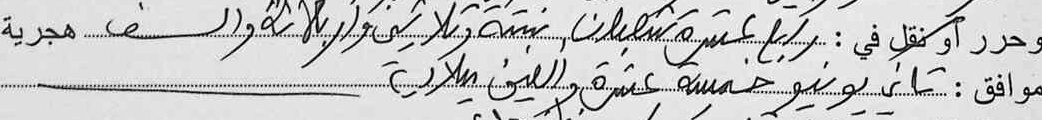 وحرر أو نقل في : رابع عشرة شعبان ستة وثلاثين وأربعمائة والف هجرية
موافق : ثاني يونيو خمسة عشرة والفين ميلادية